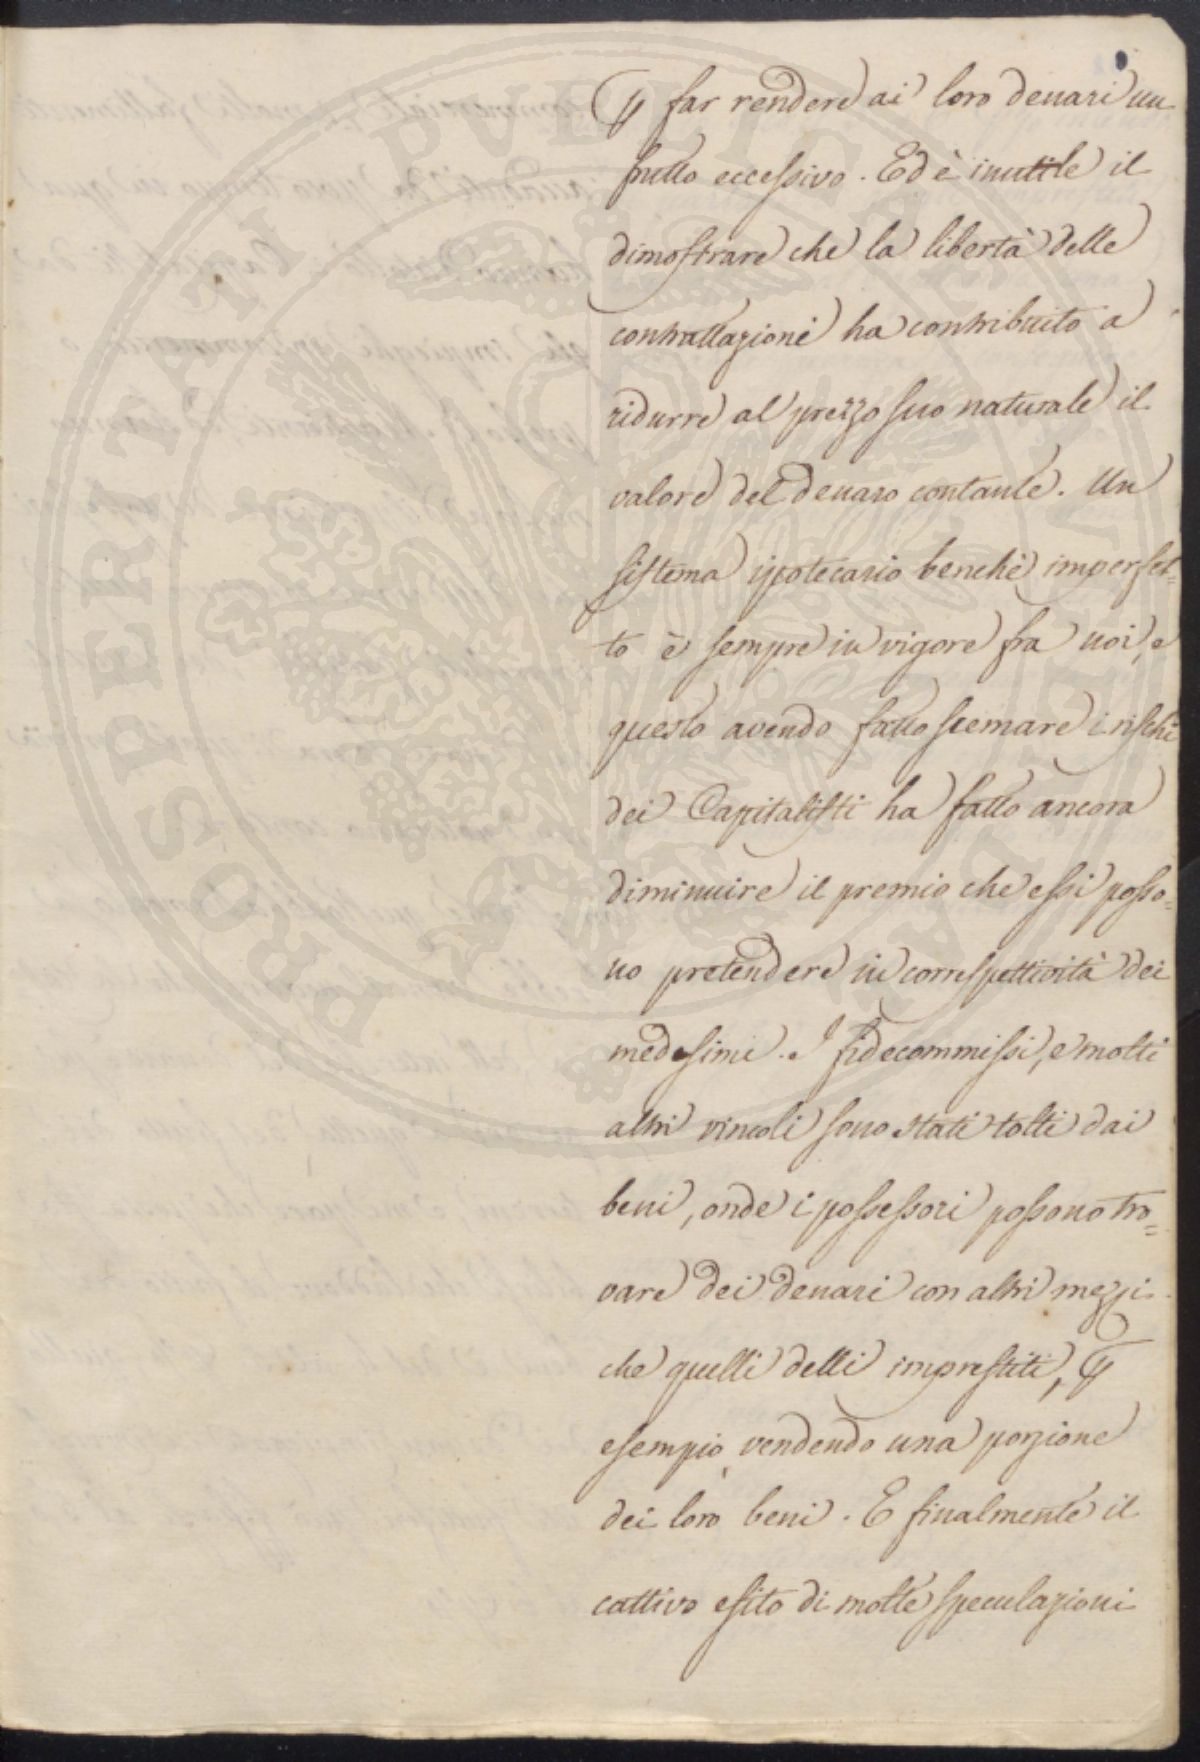 ꝑ far rendere ai loro denari un
frutto eccessivo. Ed è inutile il
dimostrare che la libertà delle
contrattazioni ha contribuito a
ridurre al prezzo suo naturale il
valore del denaro contante. Un
sistema ipotecario benchè imperfet=
to è sempre in vigore fra noi, e
questo avendo fatto scemare i rischi
dei Capitalisti ha fatto ancora
diminuire il premio che essi posso=
no pretendere in correspettività dei
medesimi. I fidecommissi, e molti
altri vincoli sono stati tolti dai
beni, onde i possessori possono tro=
vare dei denari con altri mezzi
che quelli delli imprestiti, ꝑ
esempio vendendo una porzione
dei loro beni. E finalmente il
cattivo esito di molte speculazioni
PROSPERITATI PVBLICAE